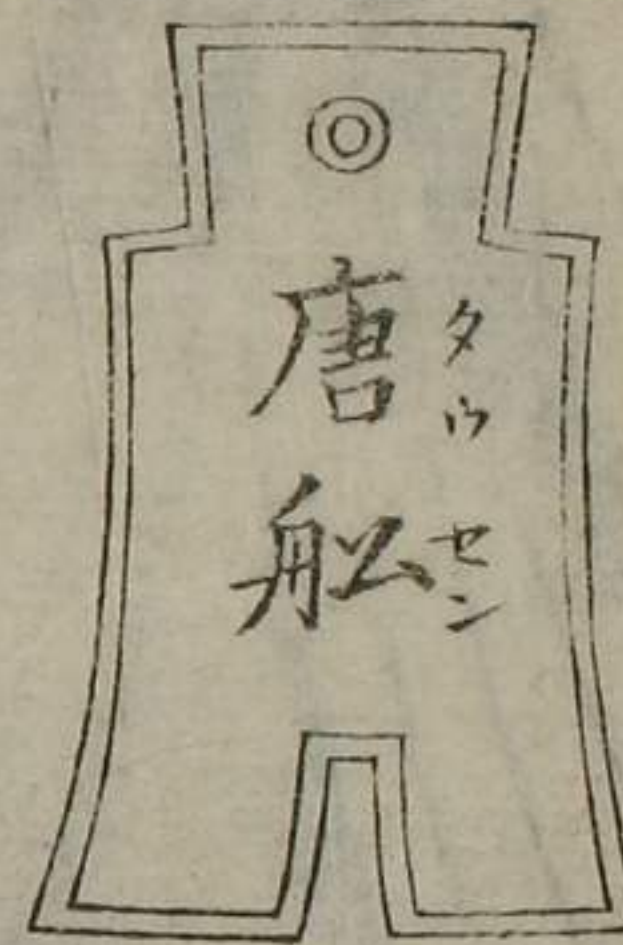 唐舩
タウセン